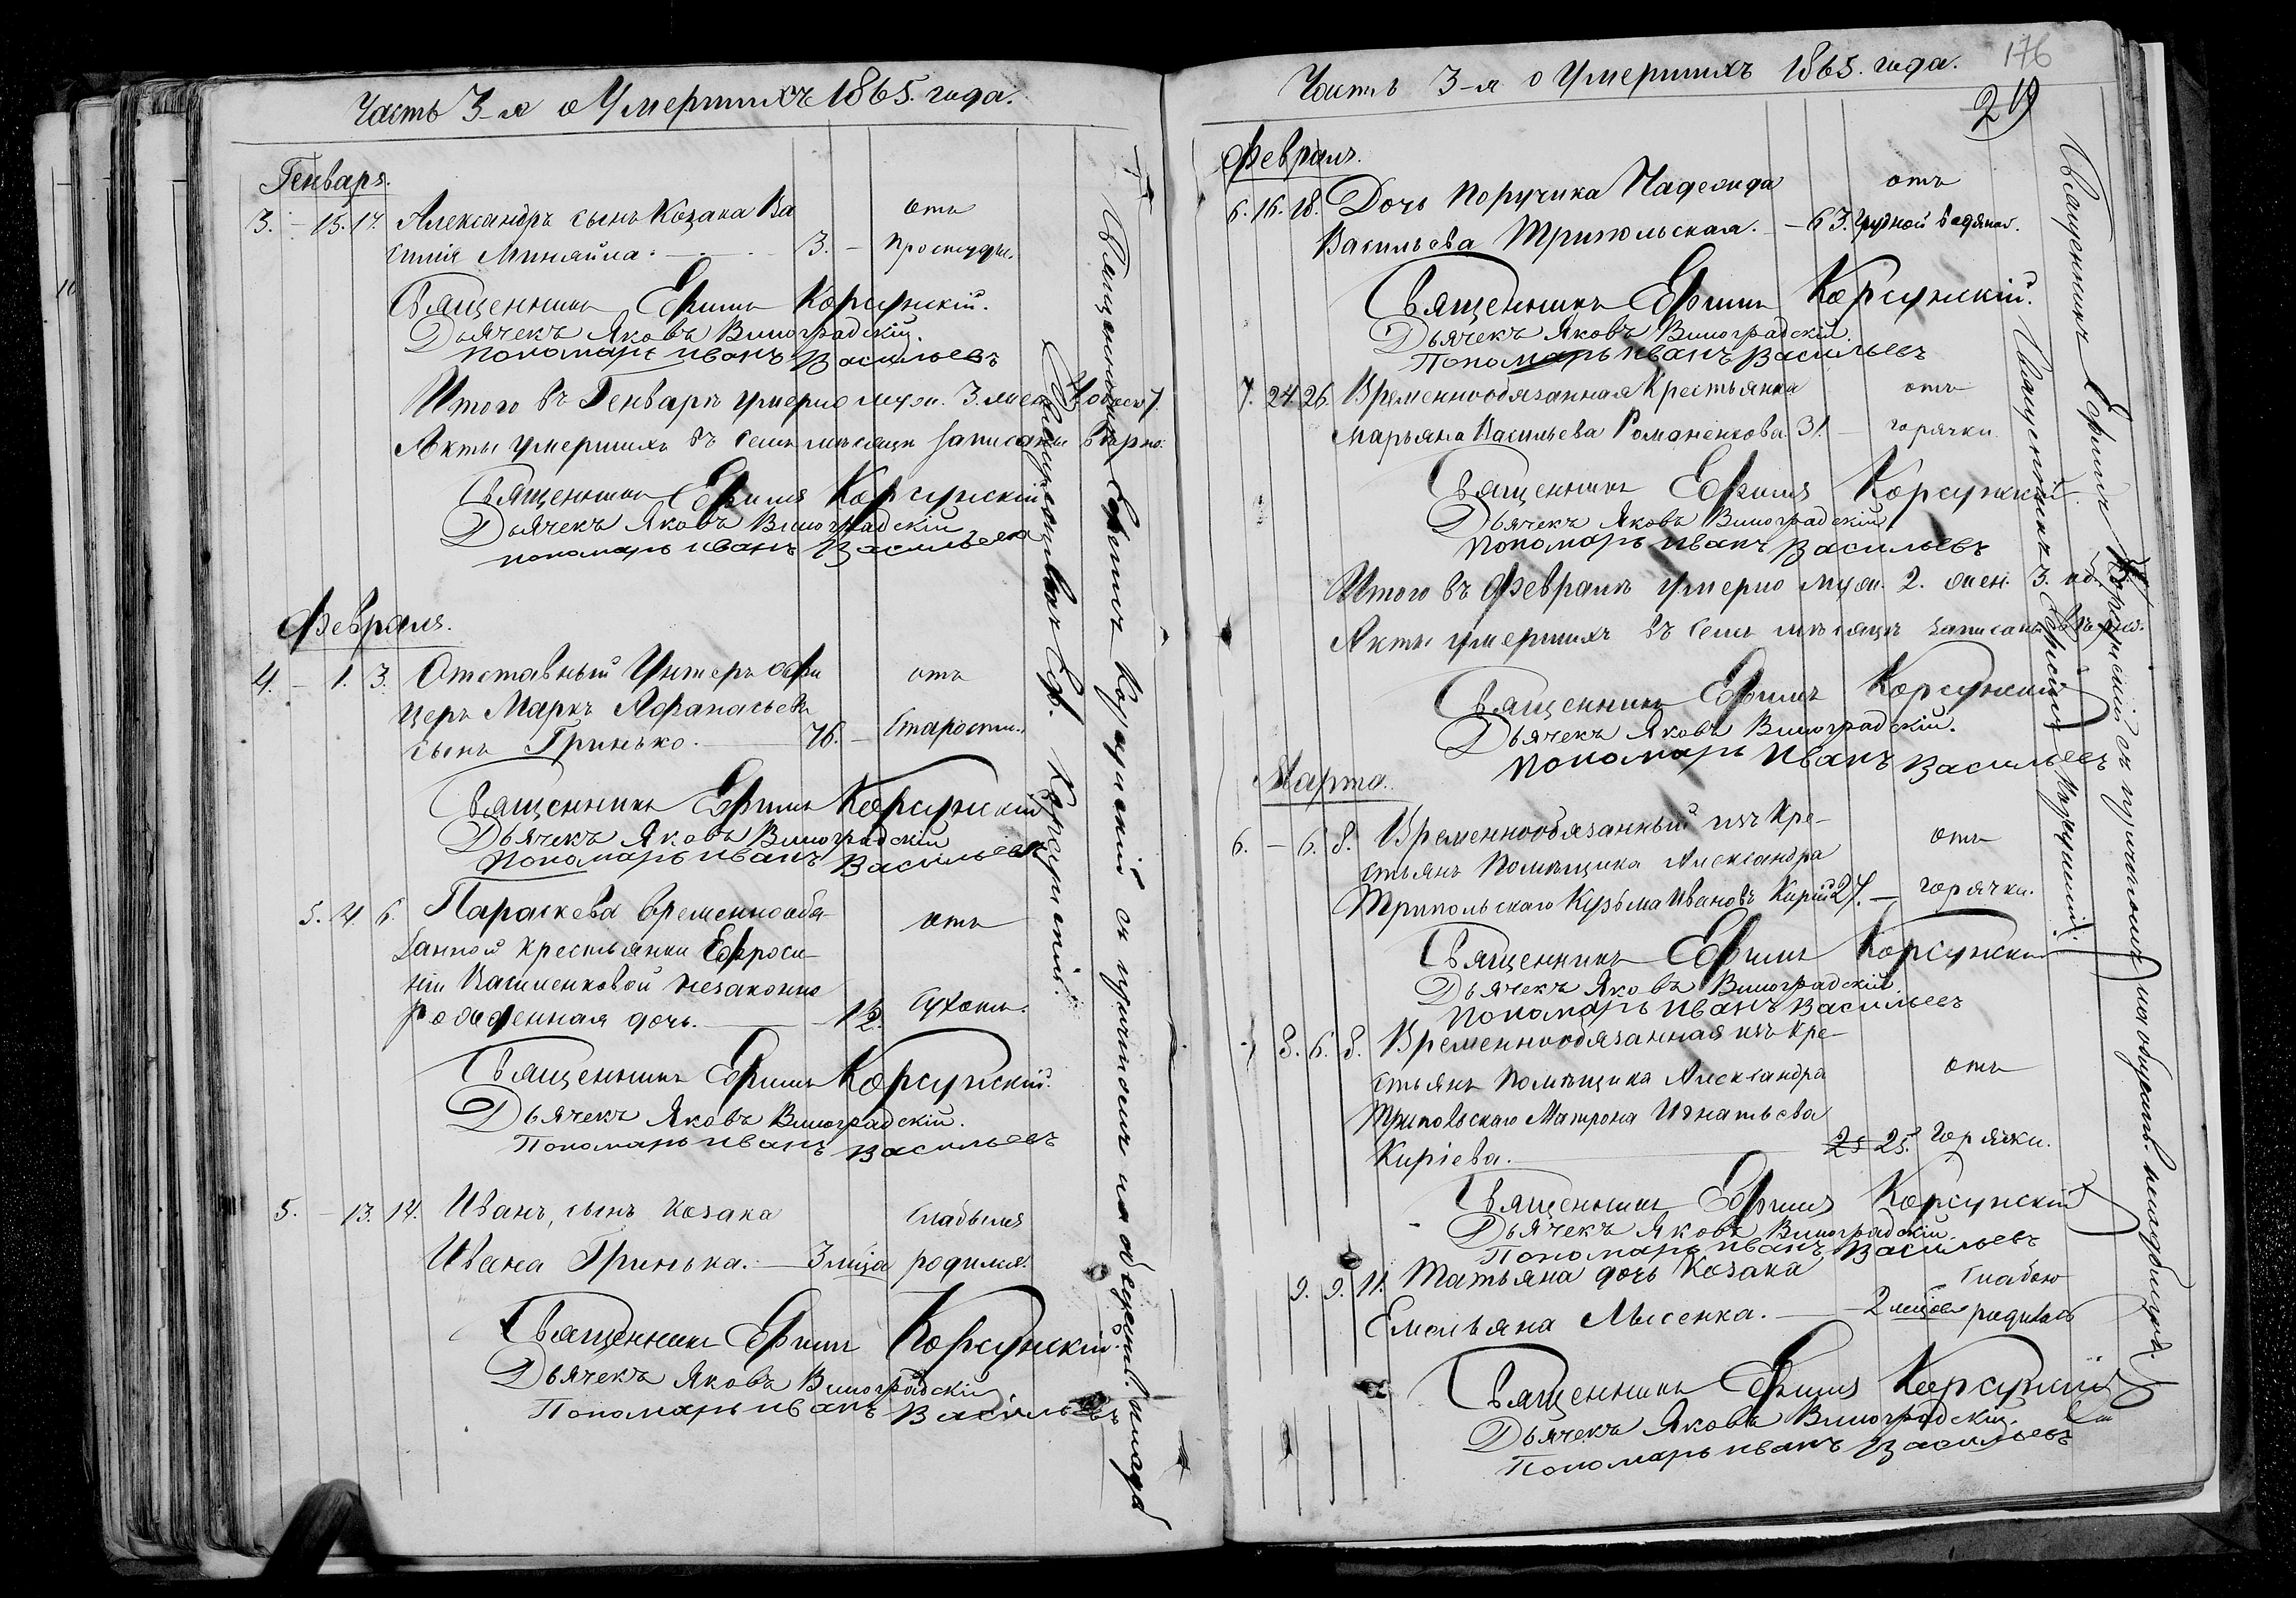 Часть 3-я о Умершихъ 1865. года.
Генваря.
3. - 15. 17. Александръ сынъ Козака Ва
силія Миняйла. 3. - отъ простуды.
Священникъ Ефимъ Корсунскій.
Дьячекъ Яковъ Виноградскій.
Пономарь Иванъ Васильевъ
Итого въ Генварѣ умерло муж. 3. жен. 4 обоего 7.
Акты умершихъ въ семъ мѣсяцѣ записаны вѣрно.
Священникъ Ефимъ Корсунскій
Дьячекъ Яковъ Виноградскій
Пономарь Иванъ Васильевъ
Февраля.
4. - 1. 3. Отставный Унтеръ офи
церъ Маркъ Афанасьевъ
сынъ Гринько. 76. - отъ Старости.
Священникъ Ефимъ Корсунскій
Дьячекъ Яковъ Виноградскій
Пономарь Иванъ Васильевъ
5. 4. 6. Параскева временнообя
занной крестьянки Ефроси
ніи незаконно
рожденная дочь. 12. отъ Сухоты.
Священникъ Ефимъ Корсунскій.
Дьячекъ Яковъ Виноградскій.
Пономарь Иванъ Васильевъ
5. - 13. 14. Иванъ, сынъ Козака
Ивана Гринька. 3 мѣца Слабымъ родился.
Священникъ Ефимъ Корсунскій.
Дьячекъ Яковъ Виноградскій.
Пономарь Иванъ Васильевъ
Священникъ Еф. Корсунскій.
Священникъ Ефимъ Корсунскій съ причтомъ
Часть 3-я о Умершихъ 1865. года.
176
29
Февраля.
6. 16. 18. Дочь Поручика Надежда
Васильева Трипольская. - 63. отъ грудной водяной.
Священникъ Ефимъ Корсунскій.
Дьячекъ Яковъ Виноградскій.
Пономарь Иванъ Васильевъ
7. 24. 26. Временнообязанная Крестьянка
Марьяна Васильева Романенкова. 31. - отъ горячки
Священникъ Ефимъ Корсунскій.
Дьячекъ Яковъ Виноградскій
Пономарь Иванъ Васильевъ
Итого въ Февралѣ умерло муж. 2. жен. 3.
Акты умершихъ въ семъ мѣсяцѣ записаны вѣрно.
Священникъ Ефимъ Корсунскій
Дьячекъ Яковъ Виноградскій.
Пономарь Иванъ Васильевъ
Марта.
6. - 6. 8. Временнообязанный изъ Кре-
стьянъ Помѣщика Александра
Трипольскаго Кузьма Ивановъ Кирій 27. - отъ горячки.
Священникъ Ефимъ Корсунскій
Дьячекъ Яковъ Виноградскій
Пономарь Иванъ Васильевъ
8. 6. 8. Временнообязанная изъ Кре-
стьянъ Помѣщика Александра
Трипольскаго Матрона Игнатьева
Киріева. 25 25. отъ горячки.
Священникъ Ефимъ Корсунскій
Дьячекъ Яковъ Виноградскій.
Пономарь Иванъ Васильевъ
9. 9. 11. Татьяна дочь Козака
Емельяна Лысенка. 2 мѣцов слабою родилась
Священникъ Ефимъ Корсунскій
Дьячекъ Яковъ Виноградскій.
Пономарь Иванъ Васильевъ
Священникъ Ефимъ Корсунскій
Священникъ Ефимъ Корсунскій съ причтомъ